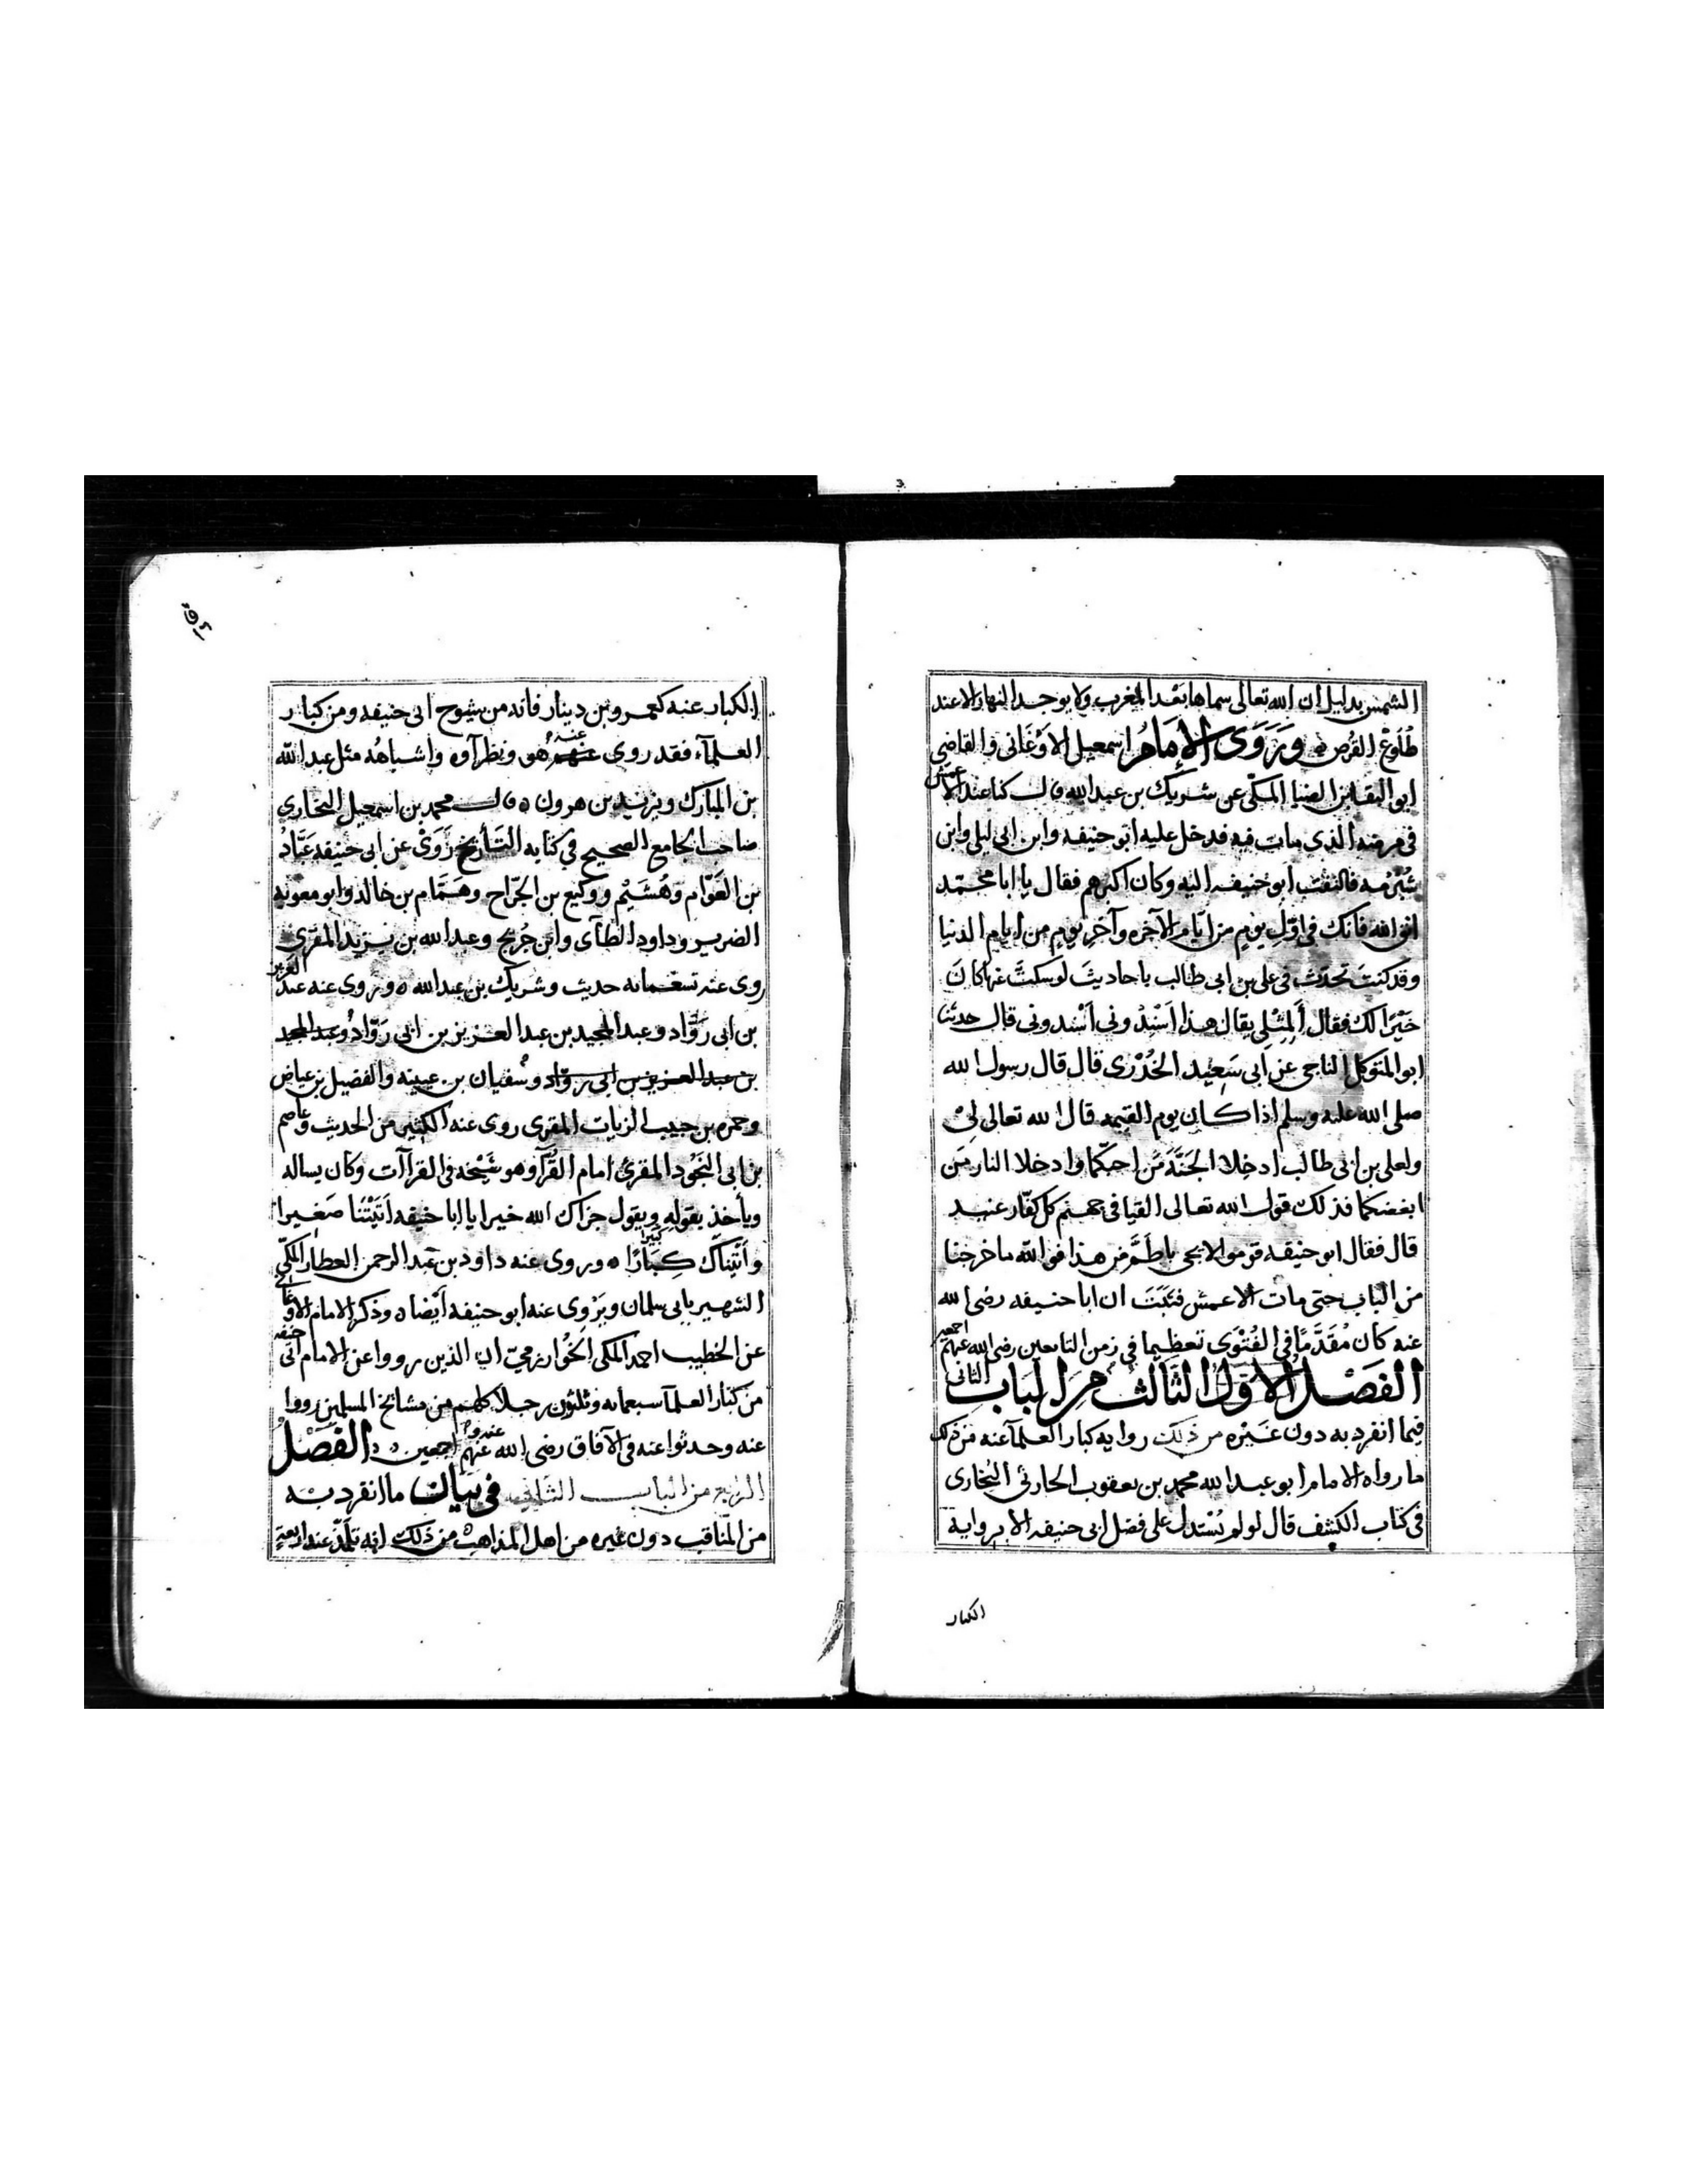 الشمس بدليل ان الله تعالى سماها بعد المغرب ولا يوجد النهار الا عند
طلوع القرص وَرَوَى الإمَامُ اسمعيل الاوغانى والقاضى
ابو البقا بن الضيا المكى عن شريك بن عبد الله قال كنا عند الاعمش
فى مرضه الذى مات فيه فدخل عليه ابو حنيفه وابن ابى ليلى وابن
شُبْرُمه فالتفت ابو حنيفه اليه وكان اكبرهم فقال يا ابا محمد
اتق الله فانك فى اوّل يوم من ايّام الآخره وآخر يوم من ايام الدنيا
وقد كنت تحدث فى على بن ابى طالب باحاديث لو سكتَّ عنها كانَ
خَيْرًا لك فقال أَلِمِثْلِى يقال هذا اَسْنِدُونى اَسْندونى قال حدثنا
ابو المتوكل الناجى عن ابى سَعِيد الخُدْرى قال قال رسول الله
صلى الله عليه وسلم اذا كان يوم القيمه قال الله تعالى لِىْ
ولعلى بن ابى طالب ادخِلا الجَنَّةَ مَن احبكما وادخلا النار مَن
ابغضكما فذلك قول الله تعالى القيا فى جهنم كل كفّار عنيد
قال فقال ابو حنيفه قوموا لا يجى باطَمَّ من هذا فوالله ما خرجنا
من الباب حتى مات الاعمش فثبَتَ ان ابا حنيفه رضى الله
عنه كان مُقَدَّمًا فى الفُتْوَى تعظيما فى زمن التابعين رضى الله عنهم اجمعين
الفَصْلُ الاوّلُ الثَّالث مِنَ البَابِ الثانى
فيما انفرد به دون غَيْره من ذلك روايه كبار العلمآ عنه فمن ذلك
ما رواه الامام ابو عبد الله محمد بن يعقوب الحارثى البخارى
فى كتاب الكشف قال لو لم يُسْتدل على فضل ابى حنيفه الا برواية
الكبار
الكبار عنه كعمرو بن دينار فانه من شيوخ ابى حنيفه ومن كبار
العلمآء فقد روى عنهم عنه هو ونظرآوه واشباهُه مثل عبد الله
بن المبارك ويزيد بن هرون ه قال محمد بن اسمعيل البخارى
صاحب الجامع الصحيح فى كتابه التَّأريخ رَوَىْ عن ابى حنيفه عَبَّادُ
بن العَوّام وهُشَيْم ووكيع بن الجرّاح وهمَّام بن خالد وابو معويه
الضرير وداود الطآى وابن جُريج وعبد الله بن يزيد المقرى
روى عنه تسعمانه حديث وشريك بن عبد الله ه وروى عنه عبد العزيز
بن ابى رَوَّاد وعبد المجيد بن عبد العزيز بن ابى رَوّاد وعبد المجيد
بن عبد العزيز بن ابى روّاد وسُفيان بن عيينه والفضيل بن عياض
وحمزه بن حبيب الزيات المقرى روى عنه الكثير من الحديث وعاصم
بن ابى النَّجُود المقرئ امام القُرّآ وهو شَيْخه فى القراآت وكان يساله
وياخذ بقوله ويقول جزاك الله خيرا يا ابا حنيفه اَتَيْتَنَا صَغيرا
وأتَيْناك كِبَارًا كبيرا ه وروى عنه داود بن عَبد الرحمن العطار المكّى
الشهير بابى سلمان ويَرْوى عنه ابو حنيفه اَيْضا ه وذكر الامام الاوغانى
عن الخطيب احمد المكى الخُوارزمىّ ان الذين رووا عن الامام ابى حنيفه
من كبار العلمآ سبعمانه وثلثون رجلا كلهم من مشائخ المسلمين رووا
عنه وحدثوا عنه فى الآفاق رضى الله عنه وعنهم اجمعين ه الفَصْلُ
الرابع من الباب الثانى فى بَيَان ما انفرد به
من المناقب دون غيره من اهل المذاهب من ذلك انه تلمّذ عند اربعة